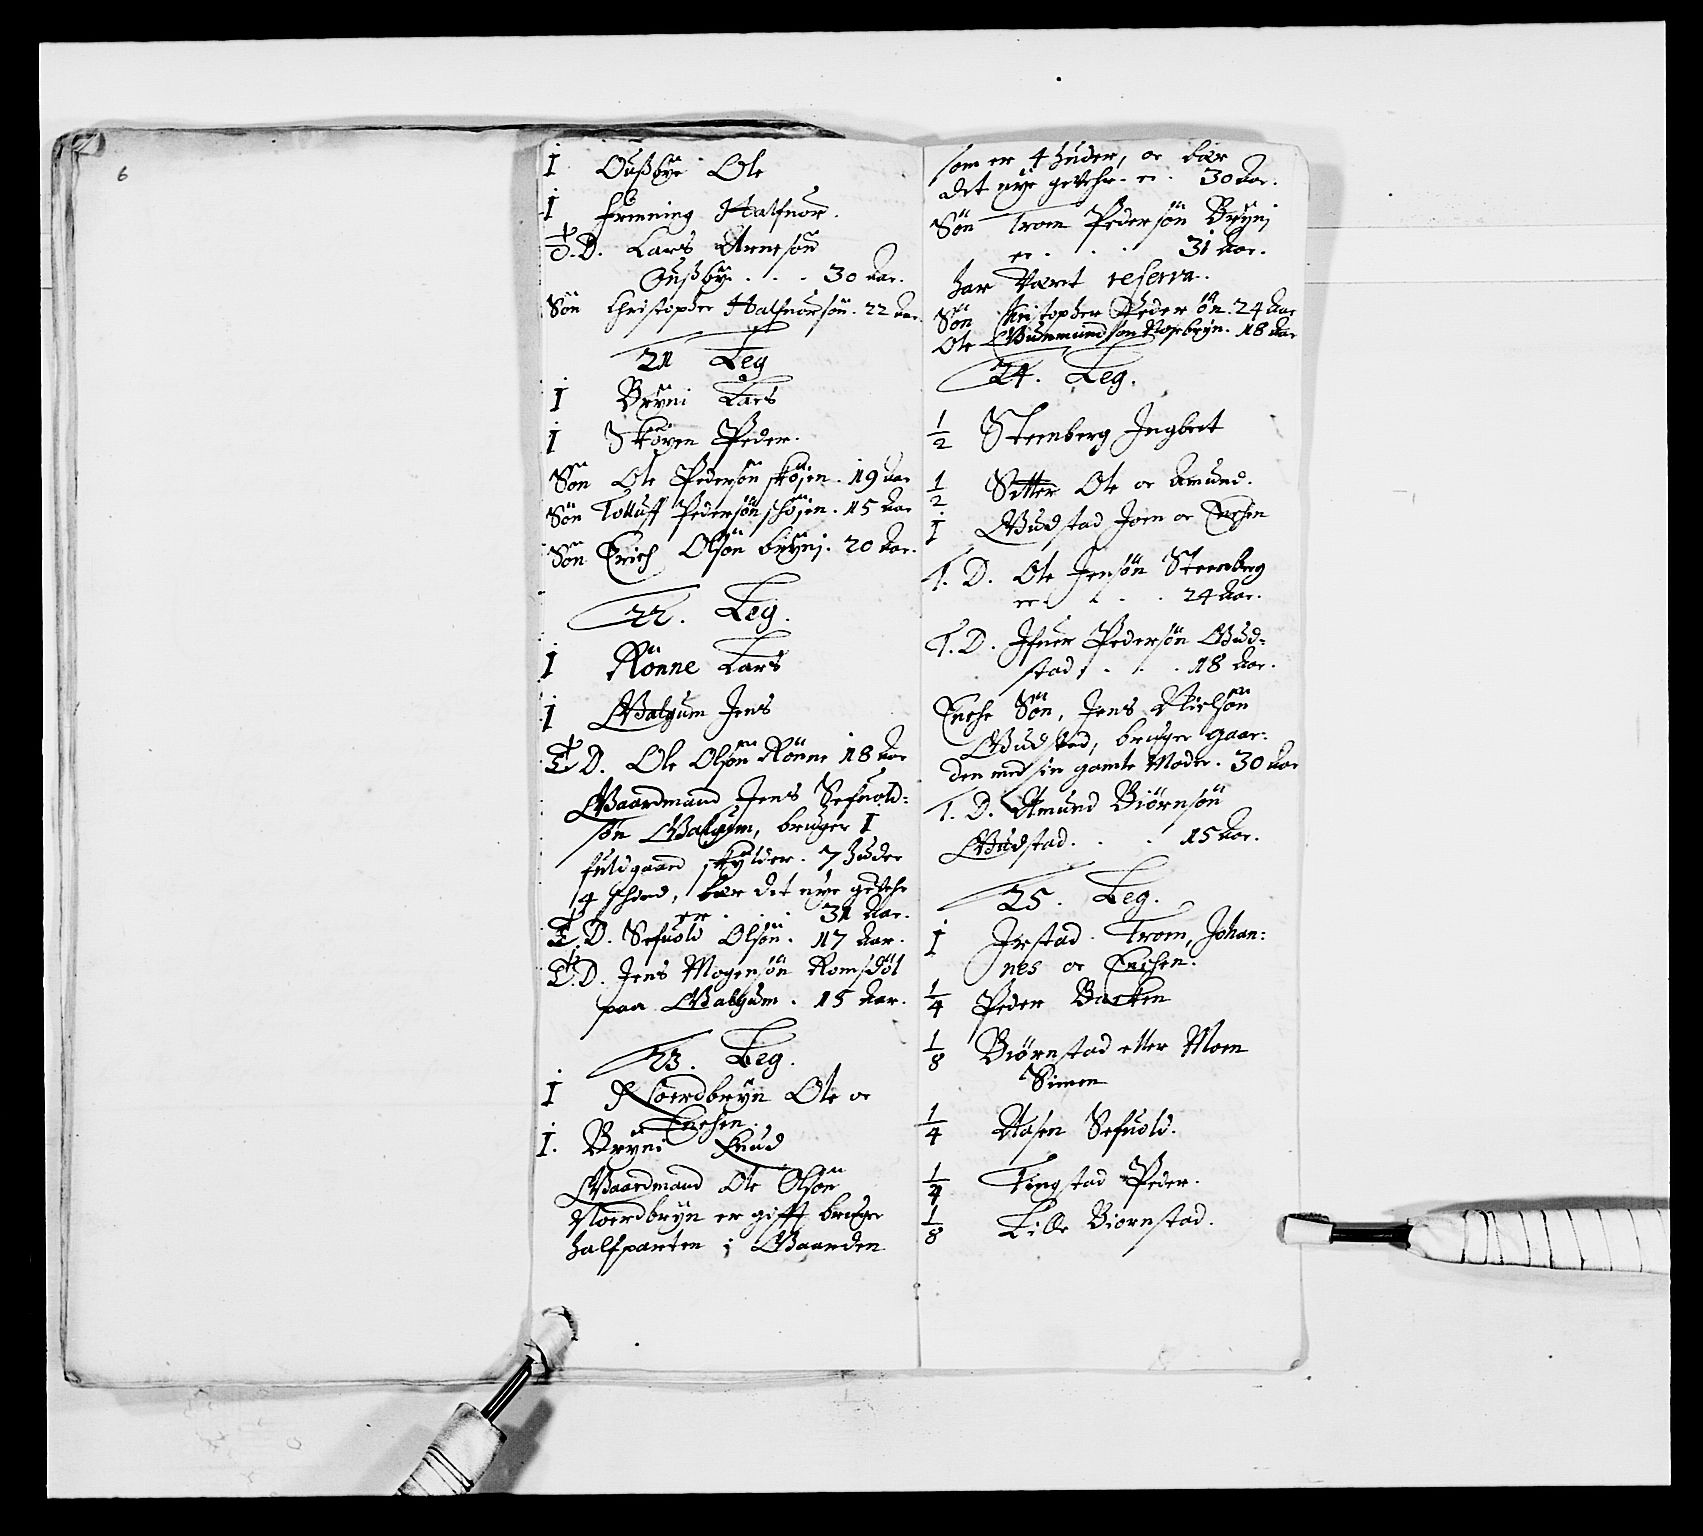 6
I Oußbye Ole
I Hfinning Halfuor.
T. D. Lars Arnesön
Oußbye . . . 30 Aar.
Sön Christopher Halfuorsön. 22 Aar.
21 Leg
I Bryni Lars
I Sköyen Peder.
Sön Ole Pedersön skójen. 19 Aar
Sön Tolluff Pedersön schöjen. 15 Aar
Sön Erich Olsön brynj. 20 Aar.
22. Leg.
I Rönne Lars
I Walgum Jens
T. D. Ole Olsön Rönne 18 Aar
Gaardmand Jens Sefuold-
sön Walgum, bruger I
fuldgaard skylder. 7 huder
4 skind, bær det nye gevehr
er . . . 31 Aar.
T. D. Sefuold Olsön. 17 Aar.
T. D. Jens Mogensön Romsdöl
paa Walgum. 15 Aar.
23. Leg.
I Noerdbryn Ole oc
Enchen.
I. Bryni Knud
Gaardmand Ole Olsön
Noerdbryn er gifft bruger
halfparten i Gaarden
som er 4 huder, oc bær
det nye gevehr er. 30 Aar.
Sön Trom Pedersön Brynj
er . . . 31 Aar.
har Været reserva.
Sön Christopher Pedersön. 24 Aar
Ole Gudmundsön Noerbryn. 18 Aar
24. Leg.
1/2 Steenberg Ingbret
1/2 Sætter Ole oc Amund.
I Gudstad Joen oc Enchen
T. D. Ole Jensön Steenberg
er . . . 24 Aar.
T. D. Ifuer Pedersön Gud-
stad . . . 18 Aar.
Enche Sön, Jens Nielsön
Gudstad, bruger gaar-
den med sin gamle Moder. 30 Aar
T. D. Amund Biörnsön
Gudstad. . . 15 Aar.
25. Leg.
I Jrstad. Trom, Johan-
nes oc Enchen.
1/4 Peder Backen
1/8 Biörnstad eller Moen
Simen
1/4 Aasen Sefuold.
1/4 Tingstad Peder.
1/8 Lille Biornstad.